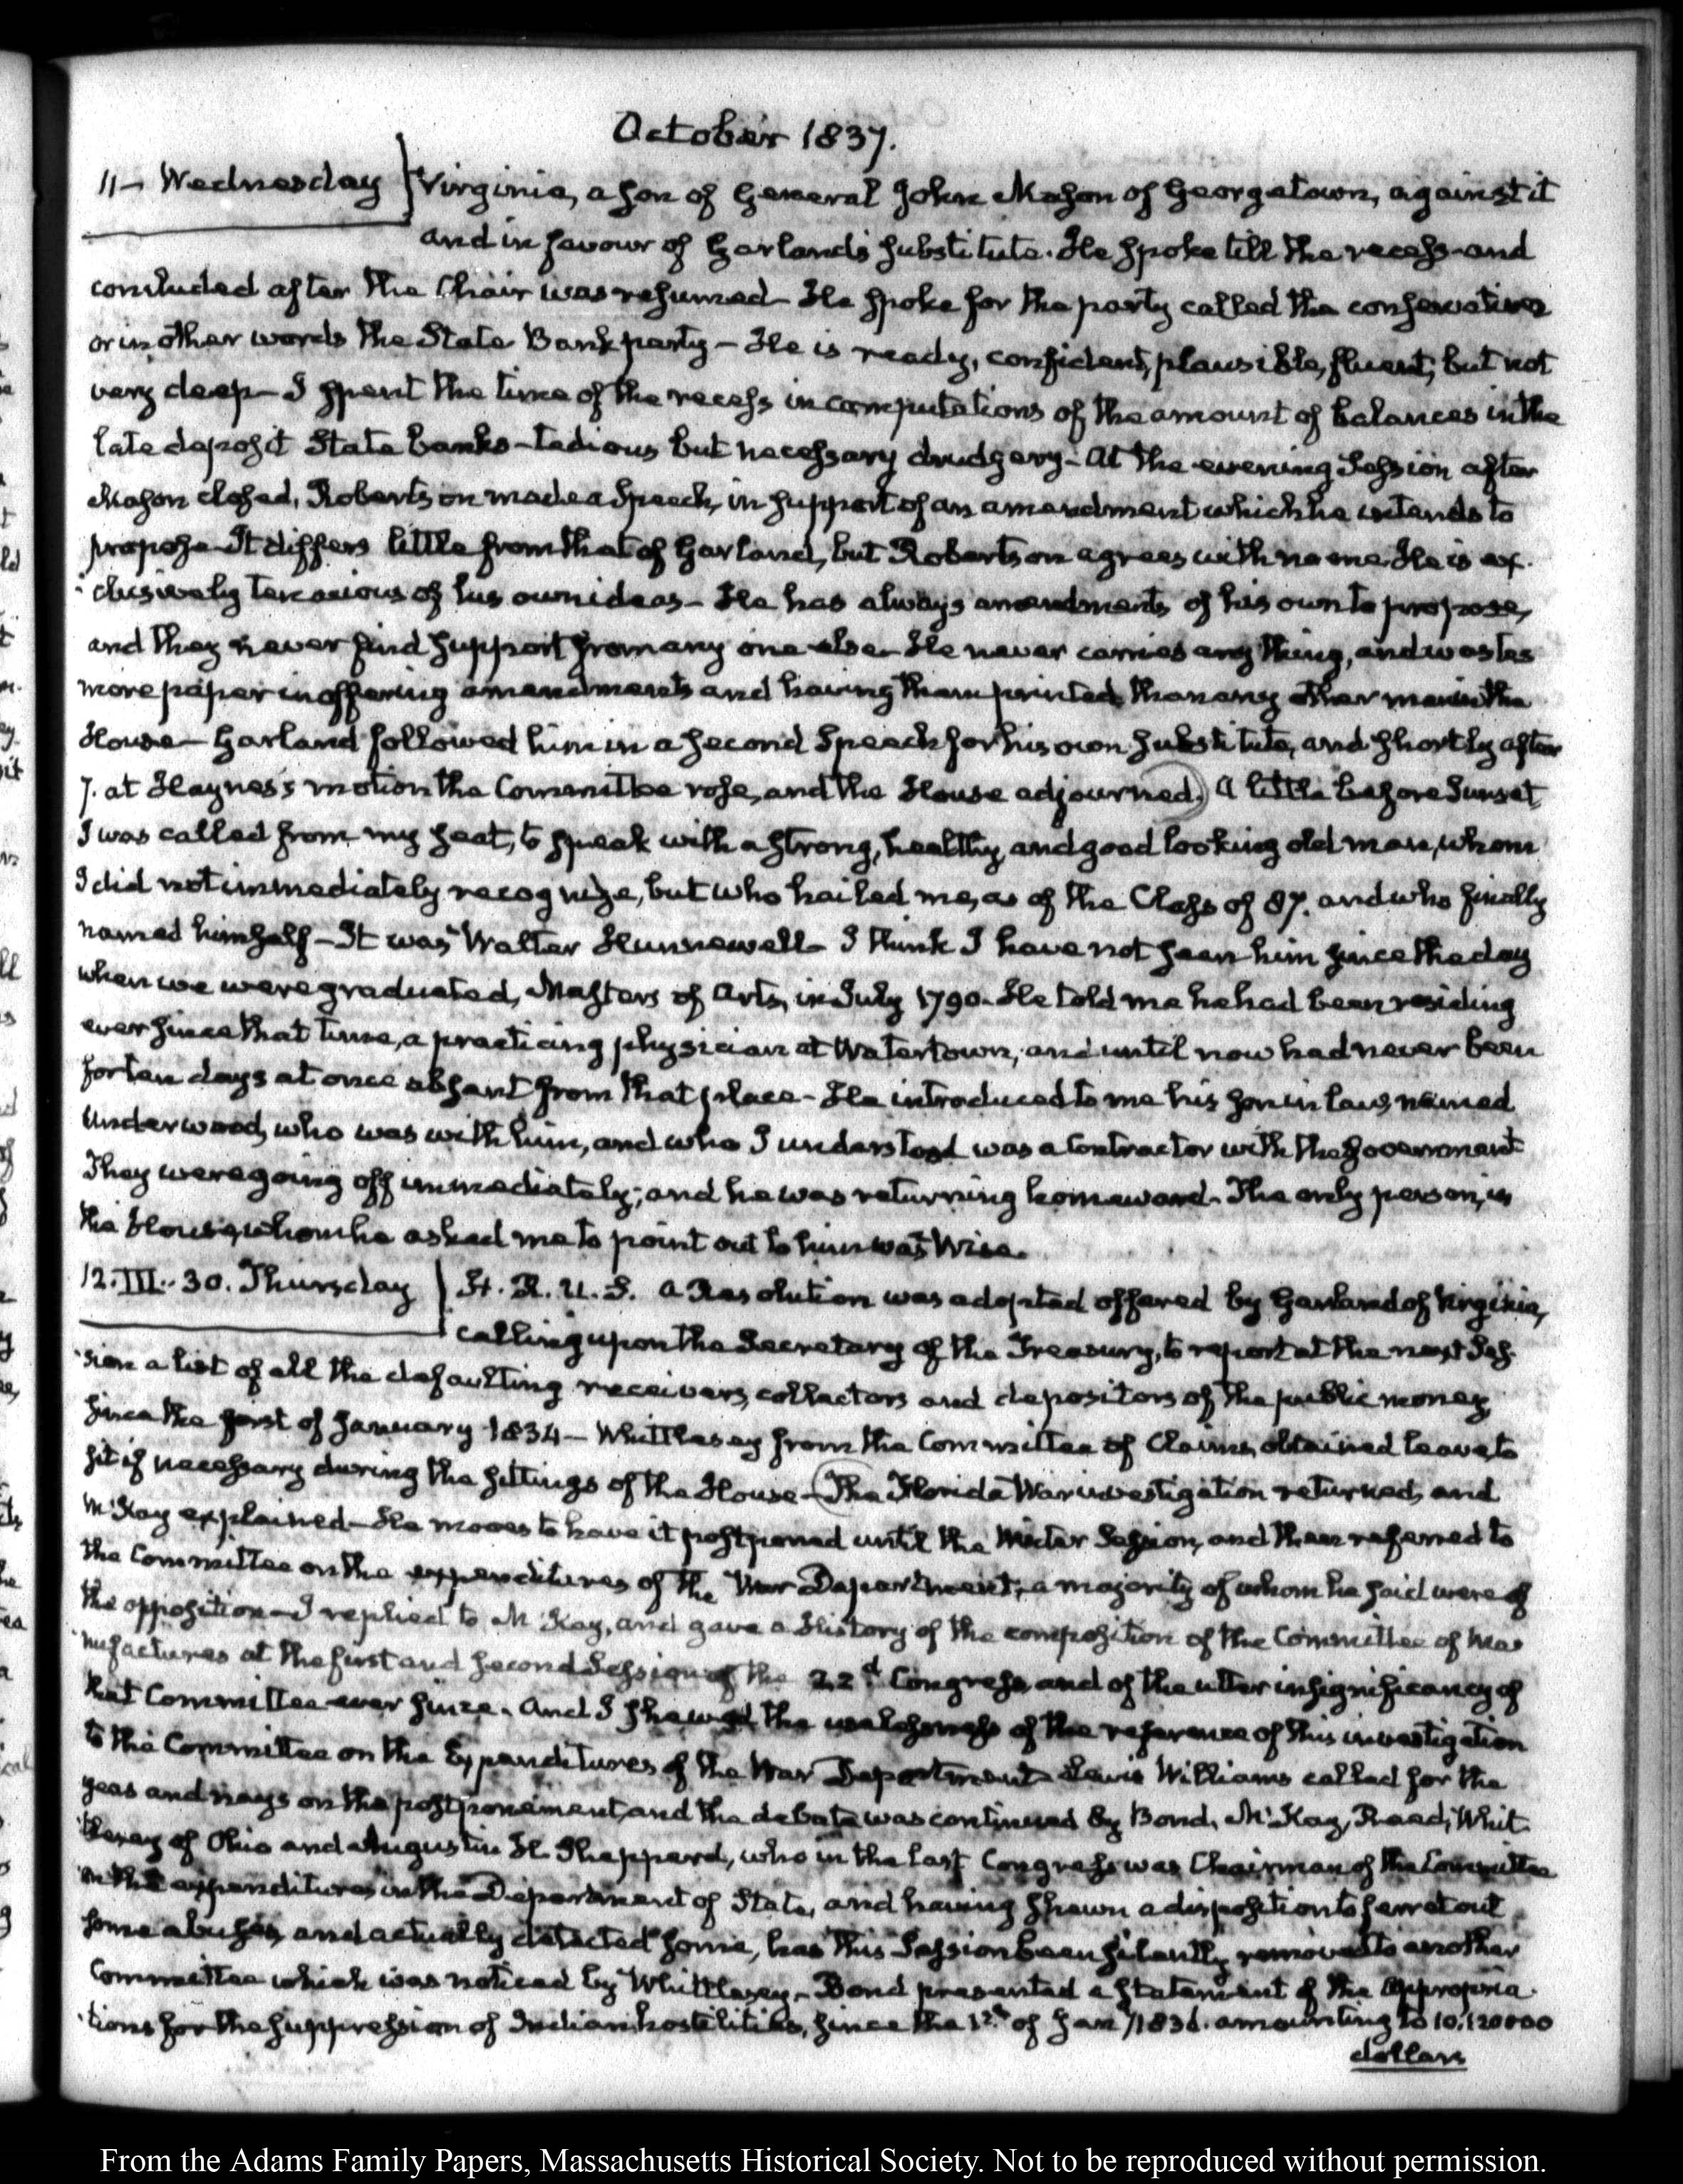 October 1837.
11 – Wednesday
Virginia, a son of General John Mason of Georgetown, against it
and in favour of Garland's substitute. He spoke till the recess and
concluded after the Chair was resumed – He spoke for the party called the conservatives
or in other words the State Bank party – He is ready, confident, plausible, fluent, but not
very deep – I spent the time of the recess in computations of the amount of balances in the
late deposit State banks – tedious but necessary drudgery – At the evening Session after
Mason closed, Robertson made a Speech, in support of an amendment which he intends to
propose – It differs little from that of Garland, but Robertson agrees with no one. He is ex-
-clusively tenacious of his own ideas – He has always amendments of his own to propose,
and they never find support from any one else – He never carries any thing, and wastes
more paper in offering amendments and having them printed than any other man in the
House – Garland followed him in a second Speech for his own substitute, and shortly after
7. at Haynes's motion the Committee rose, and the House adjourned. A little before Sunset,
I was called from my seat, to speak with a strong, healthy, and good looking old man, whom
I did not immediately recognize, but who hailed me, as of the Class of 87. and who finally
named himself – It was Walter Hunnewell – I think I have not seen him since the day
when we were graduated, Masters of Arts, in July 1790. He told me he had been residing
ever since that time, a practicing physician at Watertown, and until now had never been
for ten days at once absent from that place – He introduced to me his son in law, named
Underwood, who was with him, and who I understood was a Contractor with the Government
They were going off immediately; and he was returning homeward. The only person, in
the House, whom he asked me to point out to him was Wise.
12. III..30. Thursday
H. R. U. S. A Resolution was adopted offered by Garland of Virginia,
calling upon the Secretary of the Treasury, to report at the next Ses-
-sion a list of all the defaulting receivers, collectors and depositors of the public money,
since the first of January 1834 – Whittlesey from the Committee of Claims, obtained leave to
sit if necessary during the sittings of the House – The Florida War investigation returned, and
McKay explained – He moves to have it postponed until the Winter Session, and then referred to
the Committee on the expenditures of the War Department, a majority of whom he said were of
the opposition – I replied to McKay, and gave a History of the composition of the Committee of Ma-
-nufactures at the first and second Session of the 22d Congress, and of the utter insignificancy of
that Committee ever since. And I shewed the of the reference of this investigation
to the Committee on the Expenditures of the War Department – Lewis Williams called for the
yeas and nays on the postponement, and the debate was continued by Bond, McKay, Reed, Whit-
-tlesey of Ohio and Augustin H. Shepperd, who in the last Congress was Chairman of the Committee
on the expenditures in the Department of State, and having shewn a disposition to ferret out
some abuses, and actually detected some, has this Session been silently removed to another
Committee which was noticed by Whittlesey. – Bond presented a statement of the appropria-
-tions for the suppression of Indian hostilities, since the 1st of Jany 1836. amounting to 10.120000
dollars
From the Adams Family Papers, Massachusetts Historical Society. Not to be reproduced without permission.